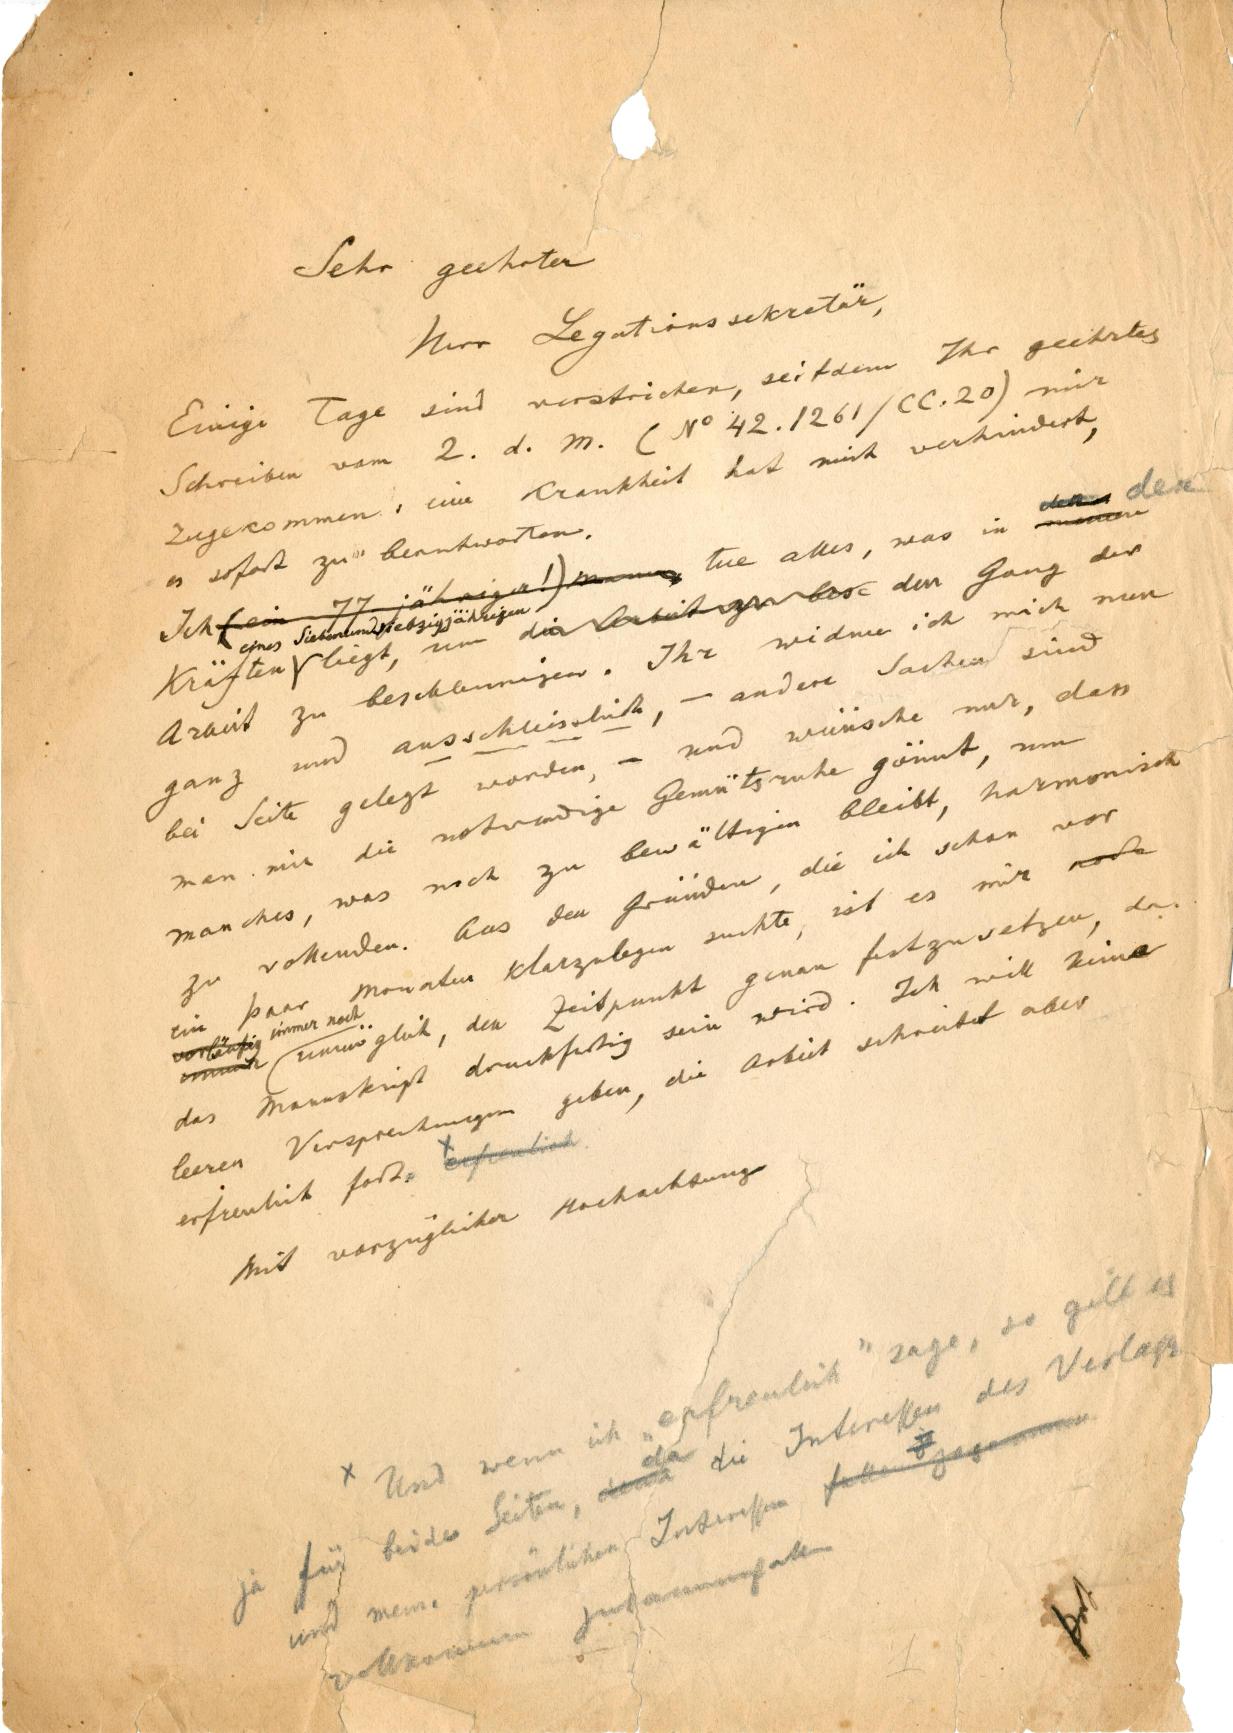 Sehr geehrter
Herr Legationssekretär,
Einige Tage sind verstrichen, seitdem Ihr geehrtes
Schreiben vom 2. d. M. (No 42.1261/CC.20) mir
zugekommen; eine Krankheit hat mich verhindert,
es sofort zu beantworten.
den
Ich (ein 77 jähriger!) tue alles, was in meinen
eines Siebenundsiebzigjährigen
Kräften liegt, um die Arbeit zu bes den Gang der
Arbeit zu beschleunigen. Ihr widme ich mich nun
ganz und ausschliesslich, – andere Sachen sind
bei Seite gelegt worden, – und wünsche nur, dass
man mir die notwendige Gemütsruhe gönnt, um
manches, was noch zu bewältigen bleibt, harmonisch
zu vollenden. Aus den Gründen, die ich schon vor
ein paar Monaten klarzulegen suchte, ist es mir noch
vorläufig immer noch
immer unmöglich, den Zeitpunkt genau festzusetzen, da
das Manuskript druckfertig sein wird. Ich will keine
leeren Versprechungen geben, die Arbeit schreitet aber
erfreulich fort. x erfreulich
Mit vorzüglicher Hochachtung
x Und wenn ich „erfreulich" sage, so gilt es
da
ja für beide Seiten, denn die Interessen des Verlags
und meine persönlichen Interessen
vollkommen zusammenfallen
1